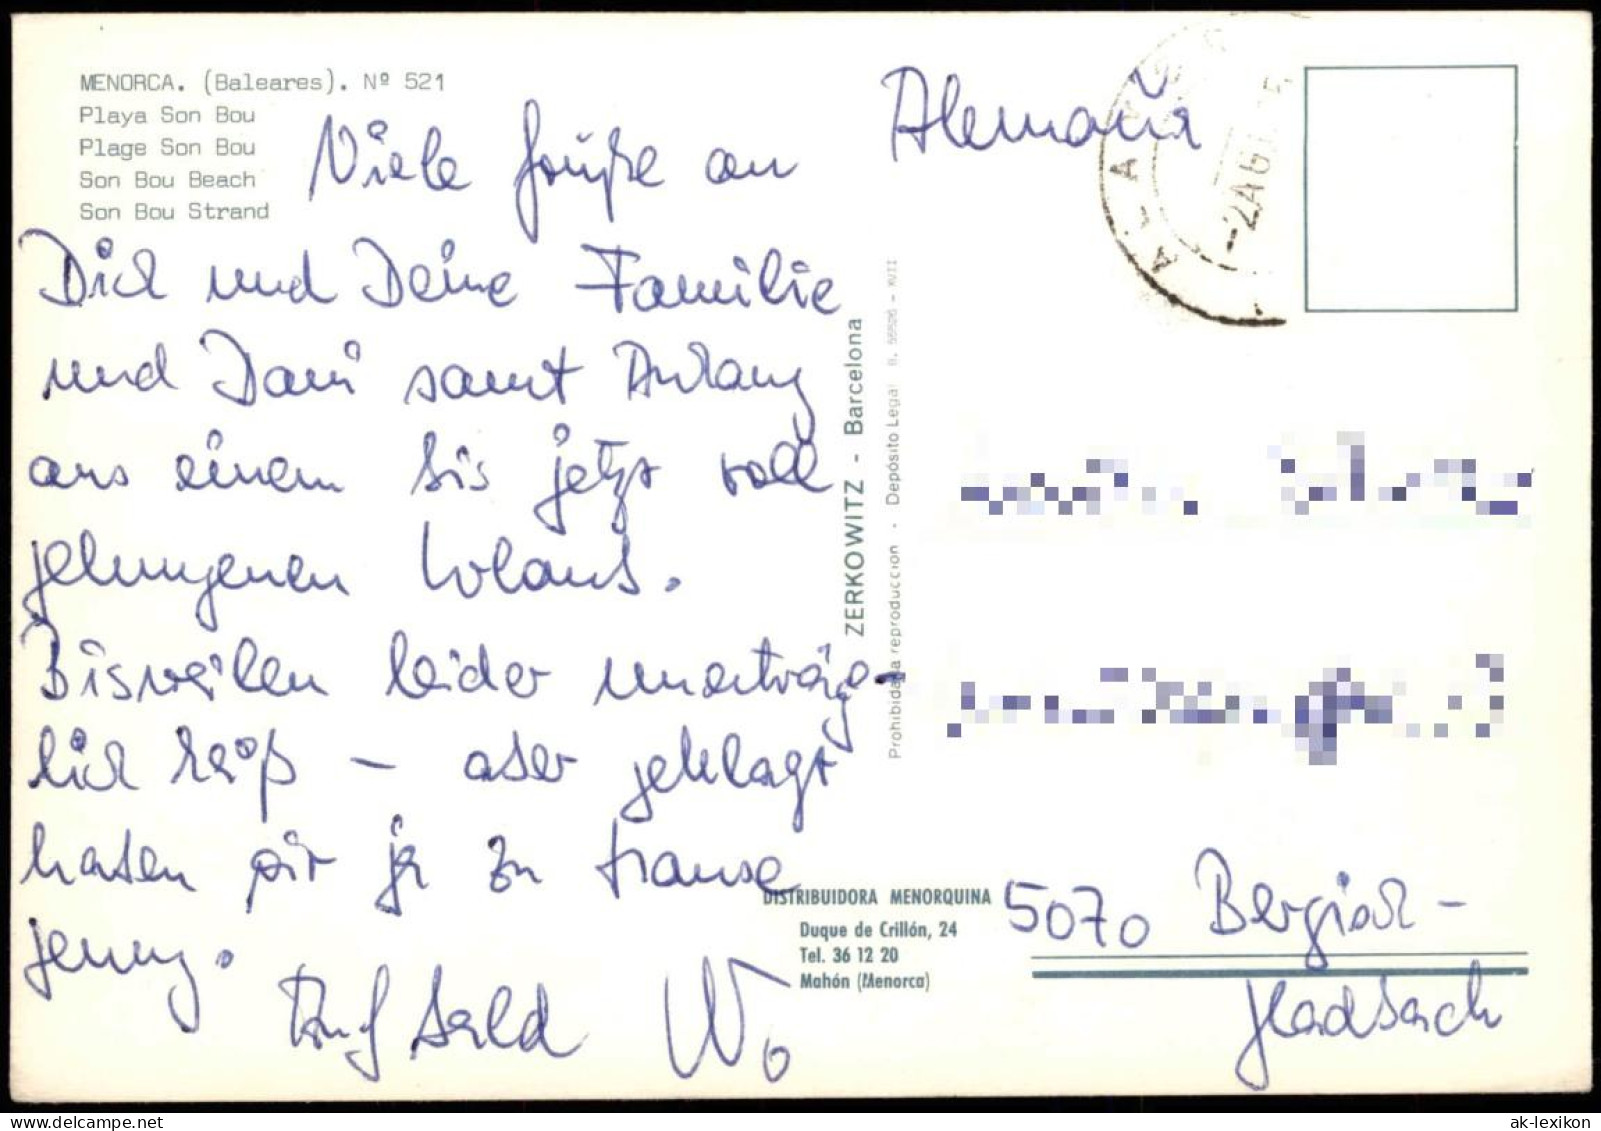 MENORCA. (Baleares). Nº 521
Playa Son Bou
Plage Son Bou
Son Bou Beach
Son Bou Strand
Viele Grüße an
Dich und Deine Familie
und Dani samt Anhang
aus einem bis jetzt voll
gelungenen Urlaub.
Bisweilen leider unerträg-
lich heiß - aber geklagt
haben wir ja zu Hause
genug.
Auf bald
Wo
ZERKOWITZ - Barcelona
Prohibida la reproducción - Depósito Legal B. - XVII
DISTRIBUIDORA MENORQUINA
Duque de Crillón, 24
Tel. 36 12 20
Mahón (Menorca)
Alemania
-2 AG
5070 Bergisch-
Gladbach
ak-ansichtskarten.de
ak-lexikon